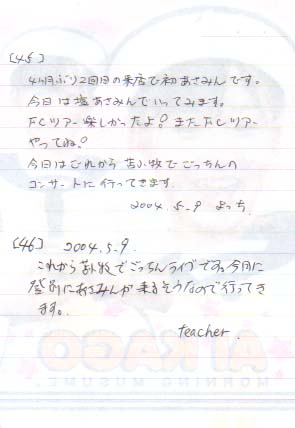 [45]
4ヶ月ぶり2回目の来店で初あさみんです。
今日は塩あさみんでいってみます。
F.Cツアー楽しかったよ! また F.Cツアー
やってね!
今日はこれから苫小牧でごっちんの
コンサートに行ってきます。
2004. 5-9 よっち
[46] 2004.5.9.
これから苫小牧でごっちんライブです。今月に
登別にあさみんが来るそうなので行ってき
ます。
teacher.
AI KAGO
MORNING MUSUME